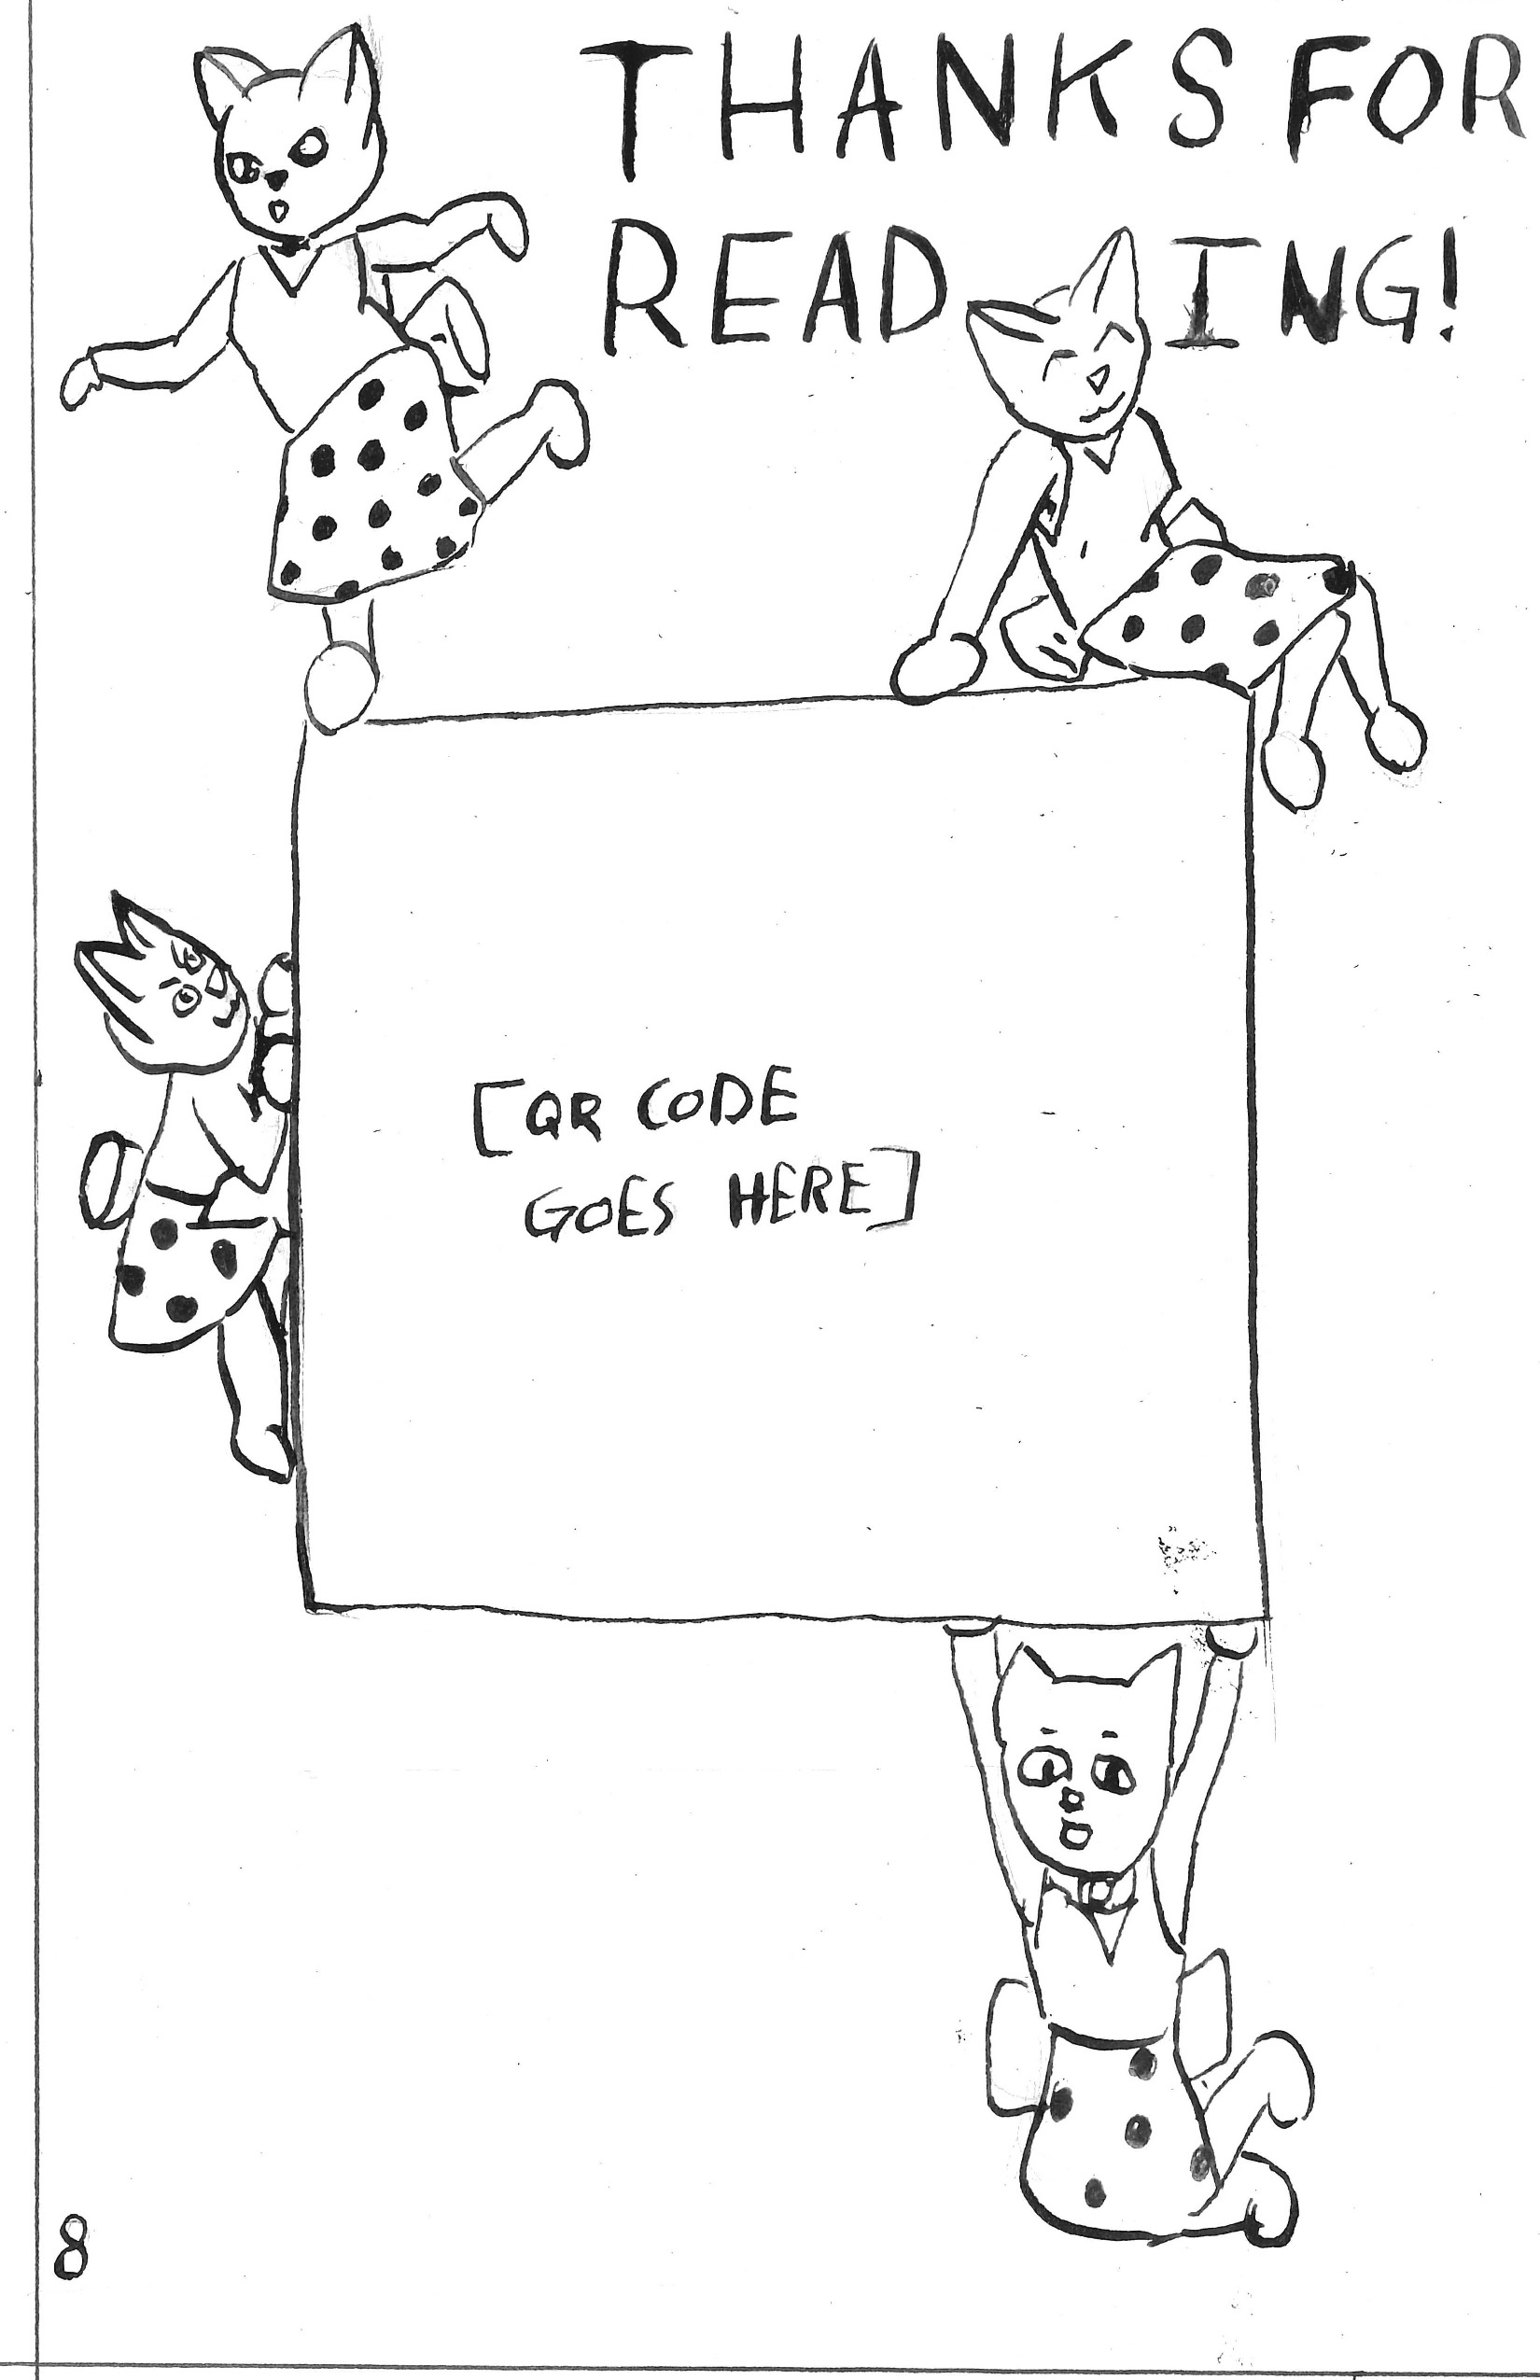 THANKS FOR
READING!
[QR CODE
GOES HERE]
8